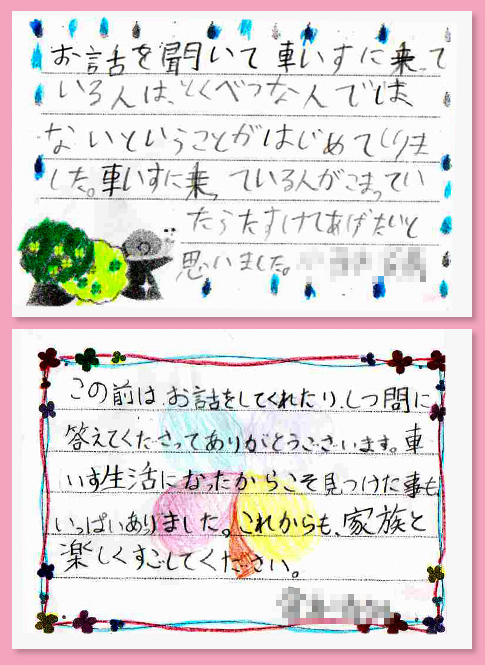 お話を聞いて車いすに乗って
いる人は、とくべつな人では
ないということがはじめてしりま
した。車いすに乗っている人がこまってい
たらたすけてあげたいと
思いました。
この前は、お話をしてくれたり、しつ問に
答えてくださってありがとうございます。車
いす生活になったからこそ見つけた事も
いっぱいありました。これからも、家族と
楽しくすごしてください。